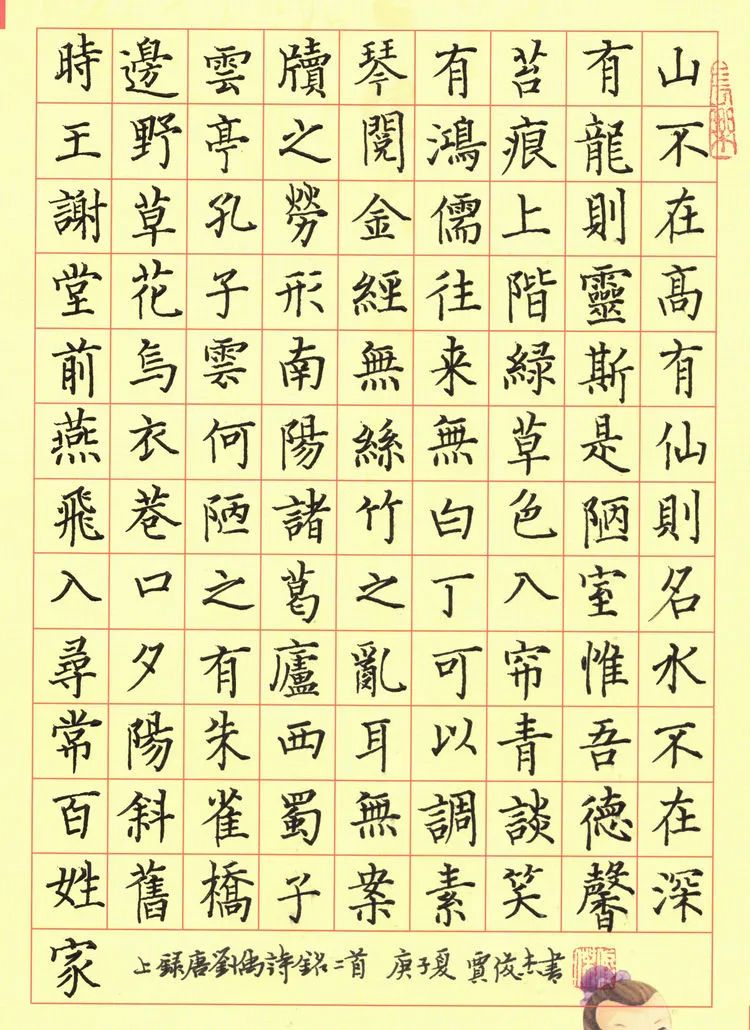 山不在高有仙則名水不在深
有龍則靈斯是陋室惟吾德馨
苔痕上階緑草色入帘青談笑
有鴻儒往来無白丁可以調素
琴閱金經無絲竹之亂耳無案
牘之勞形南陽諸葛廬西蜀子
雲亭孔子雲何陋之有朱雀橋
邊野草花烏衣巷口夕陽斜舊
時王謝堂前燕飛入尋常百姓
家
上録唐劉禹詩銘二首 庚子夏 賈俊杰書